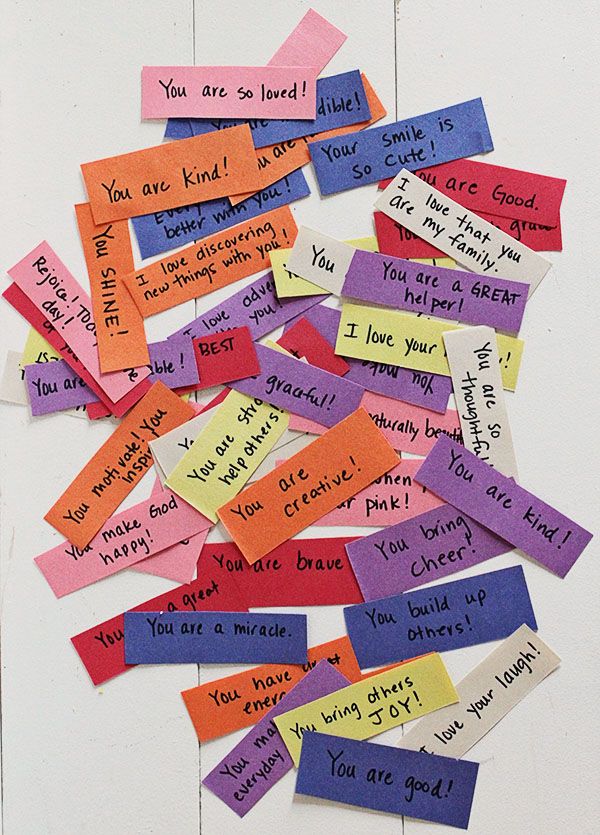 You are so loved!
dible!
Your smile is
so cute!
You are Kind!
are
You are Good.
I love that you
are my family.
better with you!
YOU SHINE!
I love discovering
new things with you!
You
You are a GREAT
helper!
Rejoice!
day!
I love
you!
I love your
BEST
You are
graceful!
You
You are so
thoughtful
You are
help others!
naturally
You motivate! You
You are
creative!
pink!
You are kind!
You make God
happy!
You bring
cheer!
You are brave
a great
You are a miracle.
You build up
others!
You have
You bring others
JOY!
I love your laugh!
You
everyday
You are good!